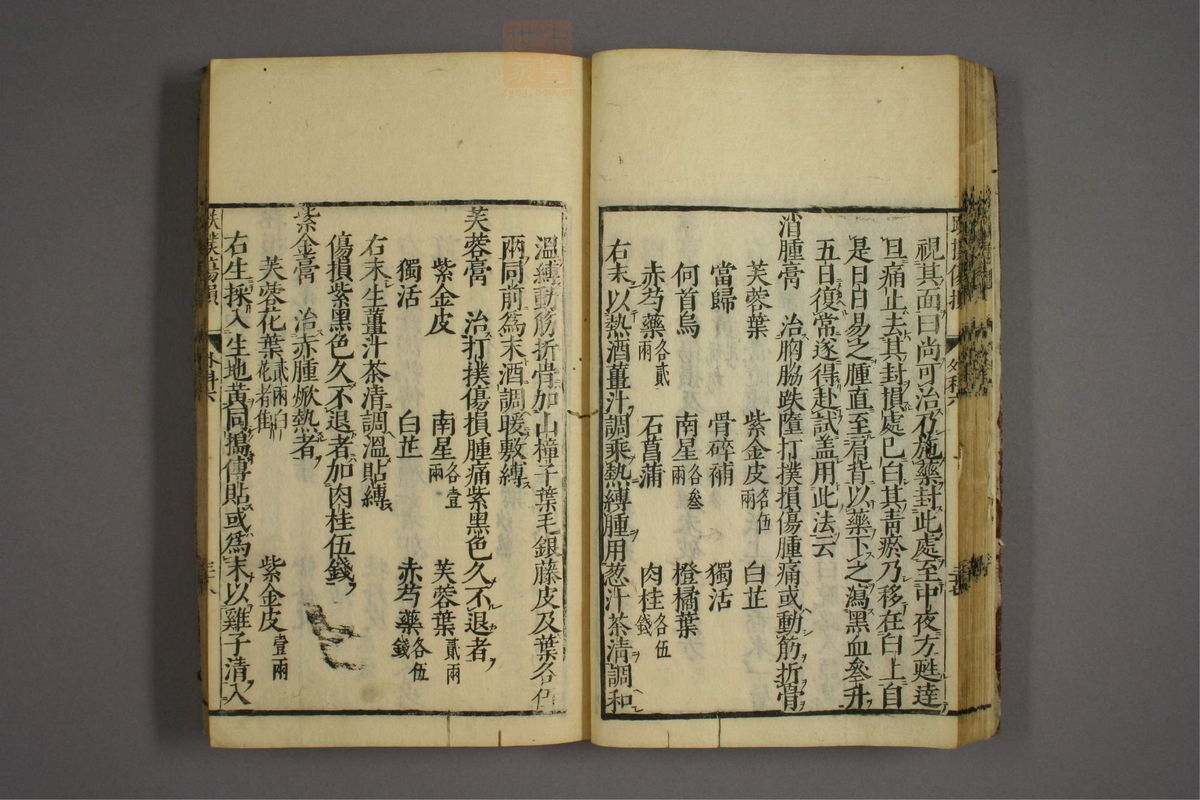 視其面曰尚可治乃施藥封此處至中夜方甦達
旦痛止去其封損處已白其靑瘀乃移在白上自
是日日易之腫直至肩背以藥下之瀉黑血叄升
五日復常遂得赴試盖用此法云
消腫膏　治胸脇跌墮打撲損傷腫痛或動筋折骨
芙蓉葉　紫金皮各伍兩　白芷
當歸　骨碎補　獨活
何首烏　南星各叄兩　橙橘葉
赤芍藥各貳兩　石菖蒲　肉桂各伍錢
右末以熱酒薑汁調乘熱縛腫用葱汁茶清調和
溫縛動筋折骨加山樟子葉毛銀藤皮及葉各伍
兩同前爲末酒調暖敷縛
芙蓉膏　治打撲傷損腫痛紫黑色久不退者
紫金皮　南星各壹兩　芙蓉葉貳兩
獨活　白芷　赤芍藥各伍錢
右末生薑汁茶清調溫貼縛
傷損紫黑色久不退者加肉桂伍錢
紫金膏　治赤腫焮熱者
芙蓉花葉貳兩白花者佳　紫金皮壹兩
右生採入生地黃同搗傅貼或爲末以雞子清入